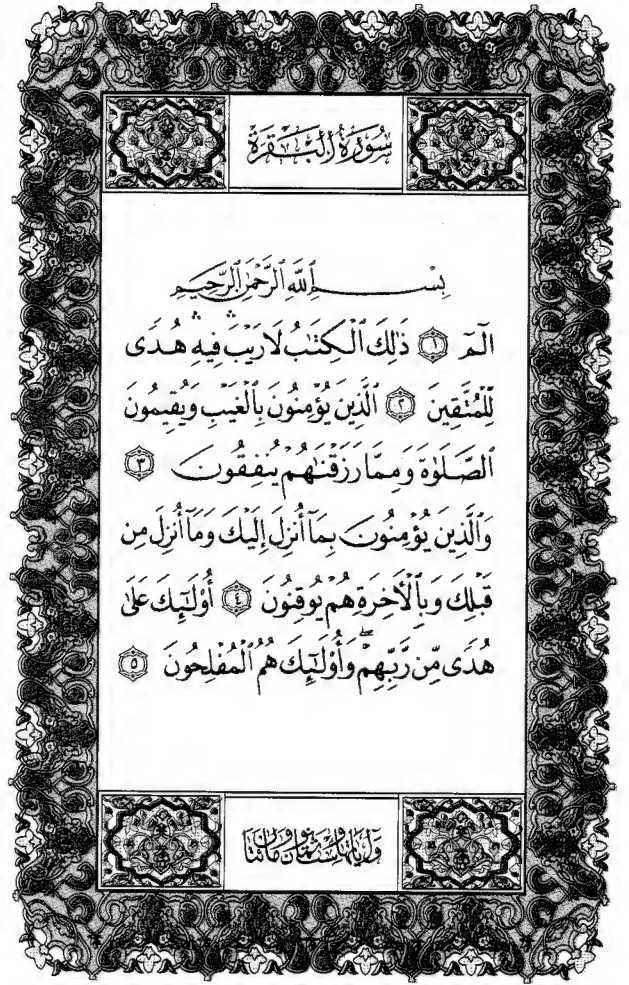 سُورَةُ ٱلْبَقَرَةِ
بِسْمِ ٱللَّهِ ٱلرَّحْمَٰنِ ٱلرَّحِيمِ
الٓمٓ ١ ذَٰلِكَ ٱلْكِتَٰبُ لَا رَيْبَ ۛ فِيهِ ۛ هُدًى
لِّلْمُتَّقِينَ ٢ ٱلَّذِينَ يُؤْمِنُونَ بِٱلْغَيْبِ وَيُقِيمُونَ
ٱلصَّلَوٰةَ وَمِمَّا رَزَقْنَٰهُمْ يُنفِقُونَ ٣
وَٱلَّذِينَ يُؤْمِنُونَ بِمَآ أُنزِلَ إِلَيْكَ وَمَآ أُنزِلَ مِن
قَبْلِكَ وَبِٱلْأَخِرَةِ هُمْ يُوقِنُونَ ٤ أُو۟لَٰٓئِكَ عَلَىٰ
هُدًى مِّن رَّبِّهِمْ ۖ وَأُو۟لَٰٓئِكَ هُمُ ٱلْمُفْلِحُونَ ٥